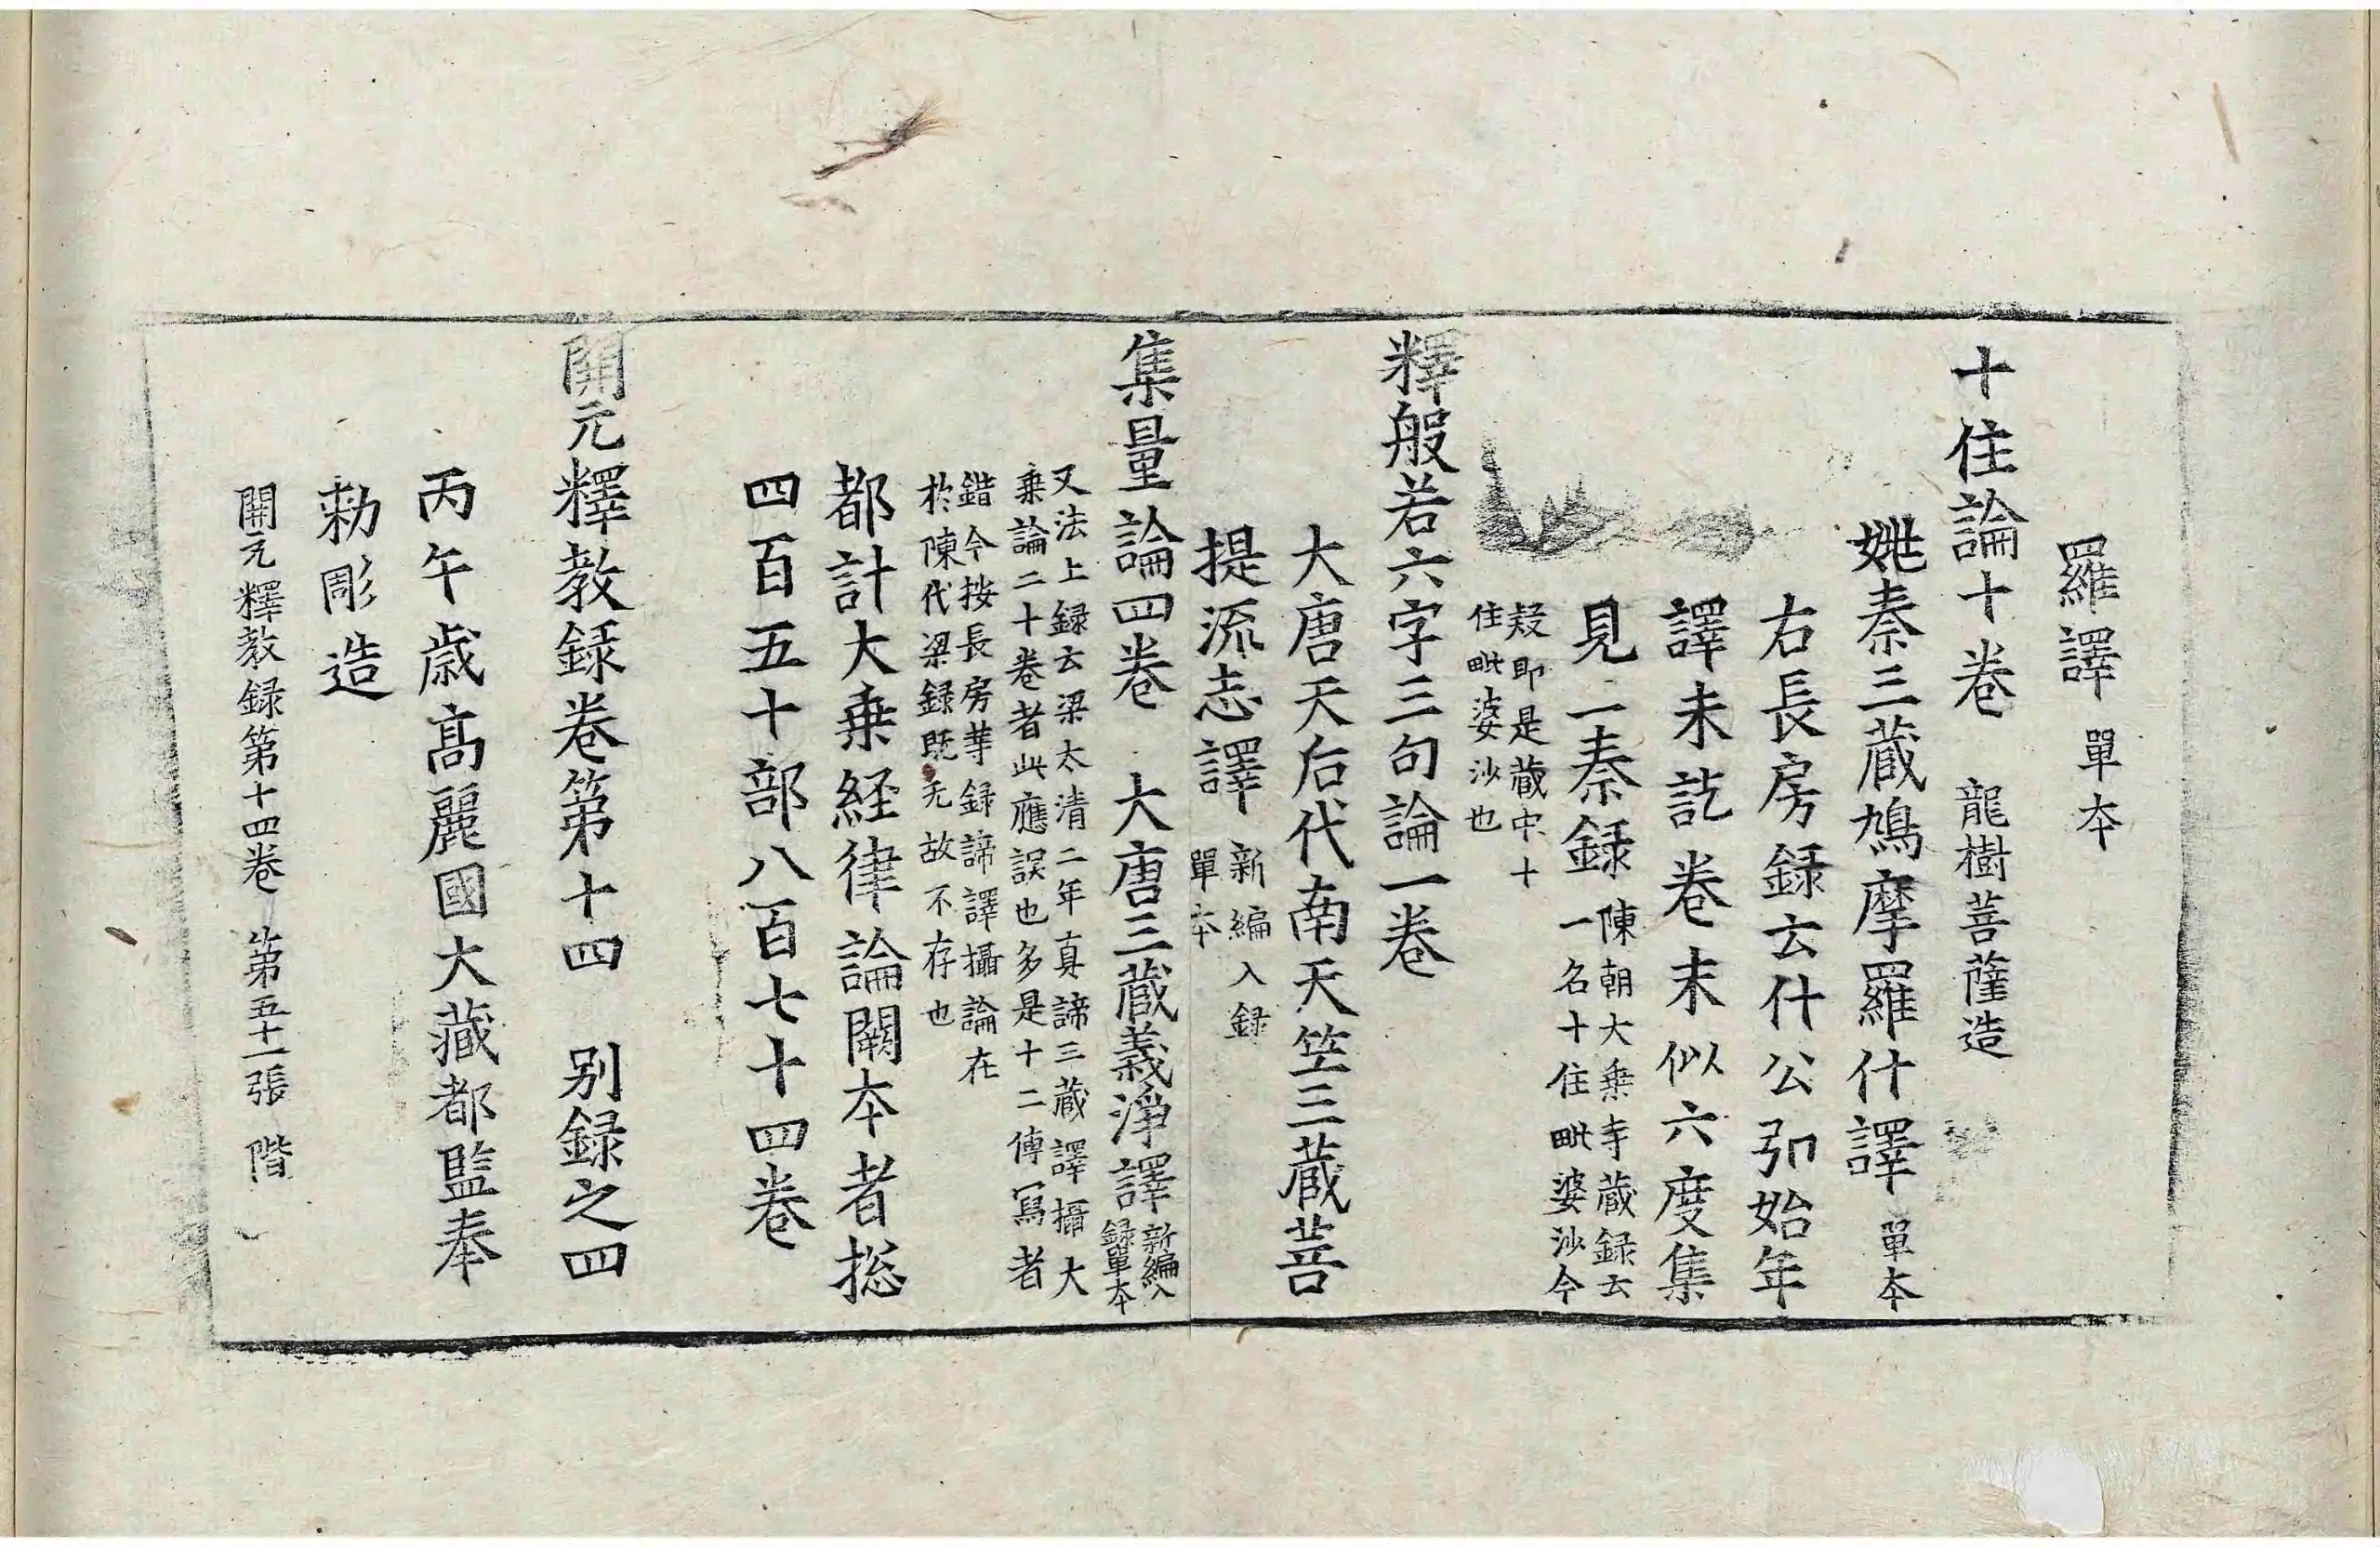 羅譯 單夲
十住論十卷 龍樹菩薩造
姚秦三蔵鳩摩羅什譯 單夲
右長房録云什公弘始年
譯未訖卷末似六度集
見二秦録 陳朝大乗寺蔵録云
一名十住毗婆沙今
疑即是蔵中十
住毗婆沙也
釋般若六字三句論一卷
大唐天后代南天竺三蔵菩
提流志譯 新編入録
單夲
集量論四卷 大唐三蔵義淨譯 新編入
録單夲
又法上録云梁太清二年真諦三蔵譯攝大
乗論二十卷者此應誤也多是十二傳寫者
錯今按長房等録諦譯攝論在
於陳代梁録既无故不存也
都計大乗経律論闕夲者揔
四百五十部八百七十四卷
開元釋教録卷第十四 别録之四
丙午歳髙麗國大藏都監奉
勑彫造
開元釋教録第十四卷 第五十一張 階